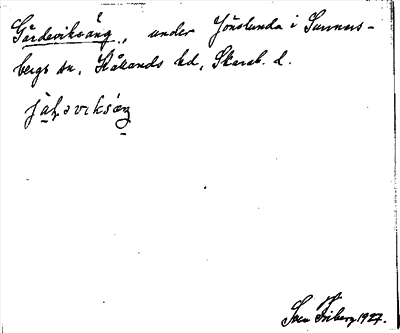 Gärdeviksäng, under Jönslunda i Sunners-
bergs sn, Kållands hd, Skarab. l.
Sven Friberg 1927.